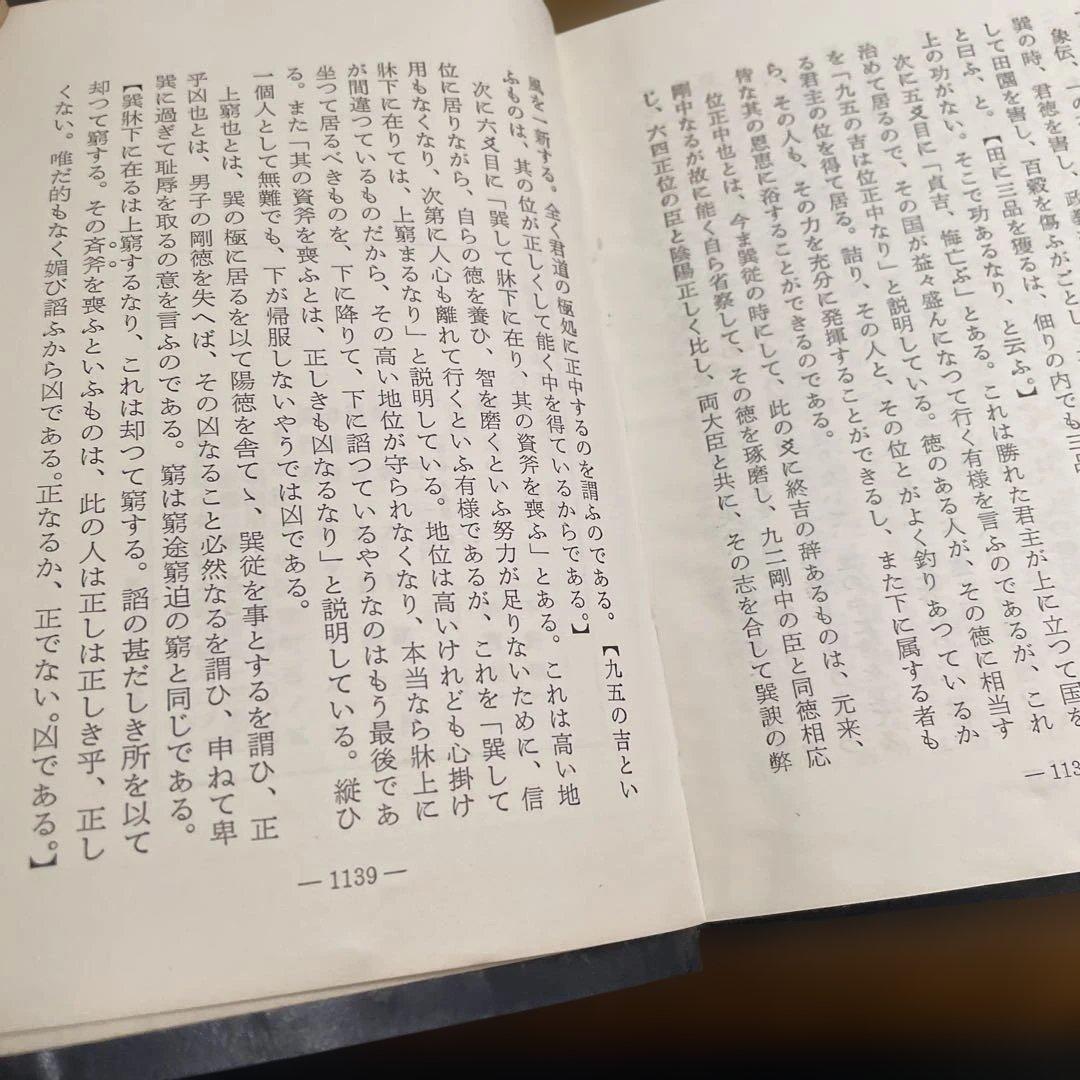 象伝、一の
巽の時、君徳を害し、政教
して田園を害し、百穀を傷ふがごとし
と曰ふ、と。【田に三品を獲るは、佃りの内でも三品
上の功がない。そこで功あるなり、と云ふ。】
次に五爻目に「貞吉、悔亡ぶ」とある。これは勝れた君主が上に立つて国を
治めて居るので、その国が益々盛んになつて行く有様を言ふのであるが、これ
を「九五の吉は位正中なり」と説明している。徳のある人が、その徳に相当す
る君主の位を得て居る。詰り、その人と、その位とがよく釣りあつているか
ら、その人も、その力を充分に発揮することができるし、また下に属する者も
皆な其の恩恵に浴することができるのである。
位正中也とは、今ま巽従の時にして、此の爻に終吉の辞あるものは、元来、
剛中なるが故に能く自ら省察して、その徳を琢磨し、九二剛中の臣と同徳相応
じ、六四正位の臣と陰陽正しく比し、両大臣と共に、その志を合して巽諛の弊
— 113
風を一新する。全く君道の極処に正中するのを謂ふのである。【九五の吉とい
ふものは、其の位が正しくして能く中を得ているからである。】
次に六爻目に「巽して牀下に在り、其の資斧を喪ふ」とある。これは高い地
位に居りながら、自らの徳を養ひ、智を磨くといふ努力が足りないために、信
用もなくなり、次第に人心も離れて行くといふ有様であるが、これを「巽して
牀下に在りては、上窮まるなり」と説明している。地位は高いけれども心掛け
が間違つているものだから、その高い地位が守られなくなり、本当なら牀上に
坐つて居るべきものを、下に降りて、下に諂つているやうなのはもう最後であ
る。また「其の資斧を喪ふとは、正しきも凶なるなり」と説明している。縦ひ
一個人として無難でも、下が帰服しないやうでは凶である。
上窮也とは、巽の極に居るを以て陽徳を舎てゝ、巽従を事とするを謂ひ、正
乎凶也とは、男子の剛徳を失へば、その凶なること必然なるを謂ひ、申ねて卑
巽に過ぎて恥辱を取るの意を言ふのである。窮は窮途窮迫の窮と同じである。
【巽牀下に在るは上窮するなり、これは却つて窮する。諂の甚だしき所を以て
却つて窮する。その斉斧を喪ふといふものは、此の人は正しは正しき乎、正し
くない。唯だ的もなく媚び諂ふから凶である。正なるか、正でない。凶である。】
— 1139 —